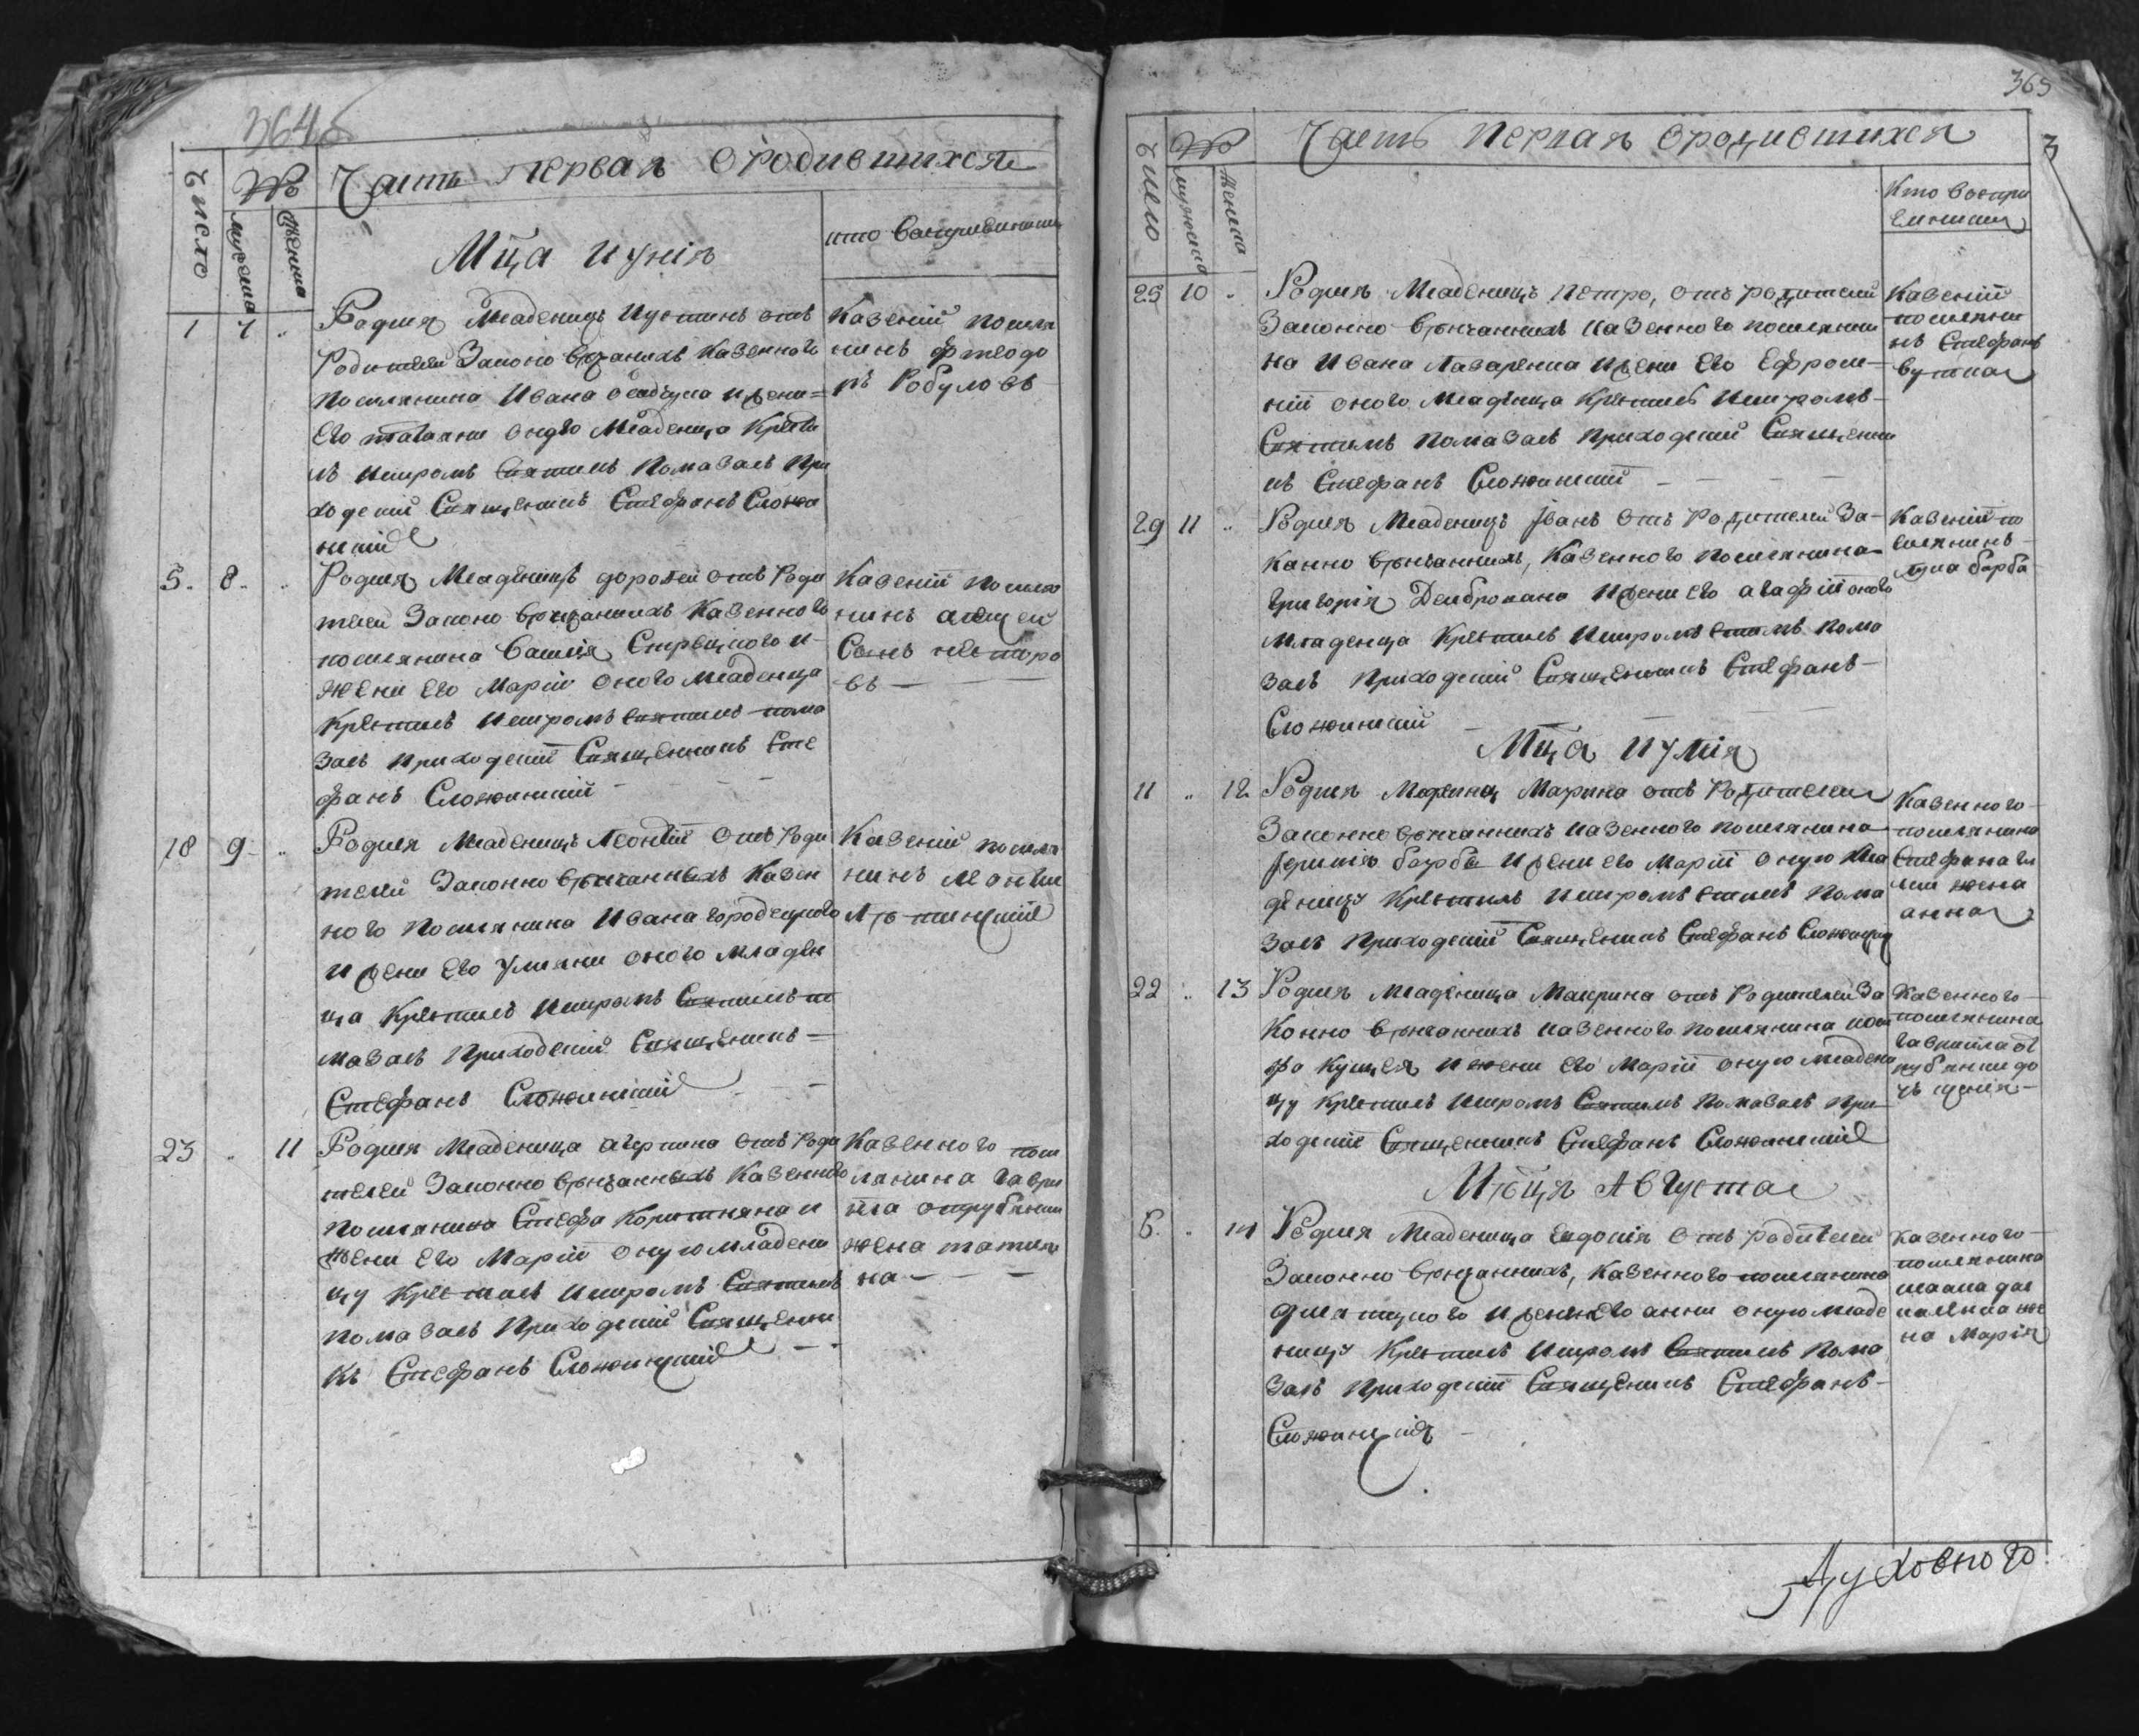 364об
Число
№
мужеска
женска
Часть первая Ородившихся
Мца иунія
кто Восприемники
1 7 "
Родися Младенецъ Иустинъ отъ
Родителей Законо Венчаныхъ Казенного
Поселянина Ивана и жени=
Его татаяни оного Младенца Крести
лъ имиромъ Святимъ Помазалъ При
ходскій Священикъ Стефанъ Сложи
нскій
Казений Поселя
нинъ фтеодо
ръ Робуловъ
5. 8. "
Родися Младенецъ дорофей отъ Роди
телей Законо Венчанихъ Казенного
поселянина Василія Стрецкого и
жени Его Маріи оного Младенца
Крестилъ имиромъ Святимъ пома
залъ Приходскій Священикъ Сте
фанъ Сложинскій
Казений Поселя
нинъ алексей
Савъ несторо
въ —
18 9 "
Родися Младенецъ Леонтій отъ Роди
телей Законно Венчанныхъ Казен
ного Поселянина Ивана городецкого
и жени Его Улияни оного младен
ца Крестилъ имиромъ Святимъ по
мазалъ Приходский Священикъ =
Стефанъ Сложинскій
Казений поселя
нинъ
23 " 11
Родися Младеница агрипина отъ Роди
телей Законно Венчанныхъ Казенного
поселянина Стефа и
жени Его Маріи оную младени
цу Крестилъ имиромъ Святимъ
помазалъ Приходский Священи
къ Стефанъ Сложинскій
Казенного посе
лянина Гаври
ила отрубянки
жена татия
на —
365
3
Число
№
мужеска
женска
Часть Первая Ородившихся
Кто Воспри
емники
25 10 "
Родися Младенецъ Петро, отъ родителей
Законно Венчаннихъ Казенного поселяни
на Ивана Лазаренка и жени Его Ефроси-
ніи оного Младенца Крестилъ имиромъ
Святимъ помазалъ Приходский Священи
къ Стефанъ Сложинский
Казений
поселяни
нъ Стефанъ
29 11 "
Родися Младенецъ Іванъ отъ Родителей За-
конно Венчаннихъ, Казенного поселянина
Григорія и жени Его агафіи оного
младенца Крестилъ имиромъ стимъ пома
залъ Приходский Священикъ Стефанъ
Сложинский
Казений по
селянинъ
лука барба
Мца иулія
11 " 12
Родися Марина отъ Родителей
Законно Венчаннихъ казенного поселянина
барби и жени его Маріи оную Мла
деницу Крестилъ имиромъ стимъ Пома
залъ Приходский Священикъ Стефанъ
Казенного
поселянина
Стефана
жена
анна
22 " 13
Родися младеница Макрина отъ Родителей За
конно Венчаннихъ казенного поселянина
и жени Его Маріи оную младени
цу Крестилъ имиромъ Святимъ Помазалъ При
ходский Священикъ Стефанъ Сложинскій
Казенного
поселянина
гавриила от
рубянки до
чъ
Месця Августа
6. " 14
Родися Младеница Евдокія отъ родителей
Законно Венчаннихъ, Казенного поселянина
и жени Его анни оную младе
ницу Крестилъ имиромъ Святимъ Пома
залъ Приходский Священикъ Стефанъ
Казенного
поселянина
же
на Марія
Духовного